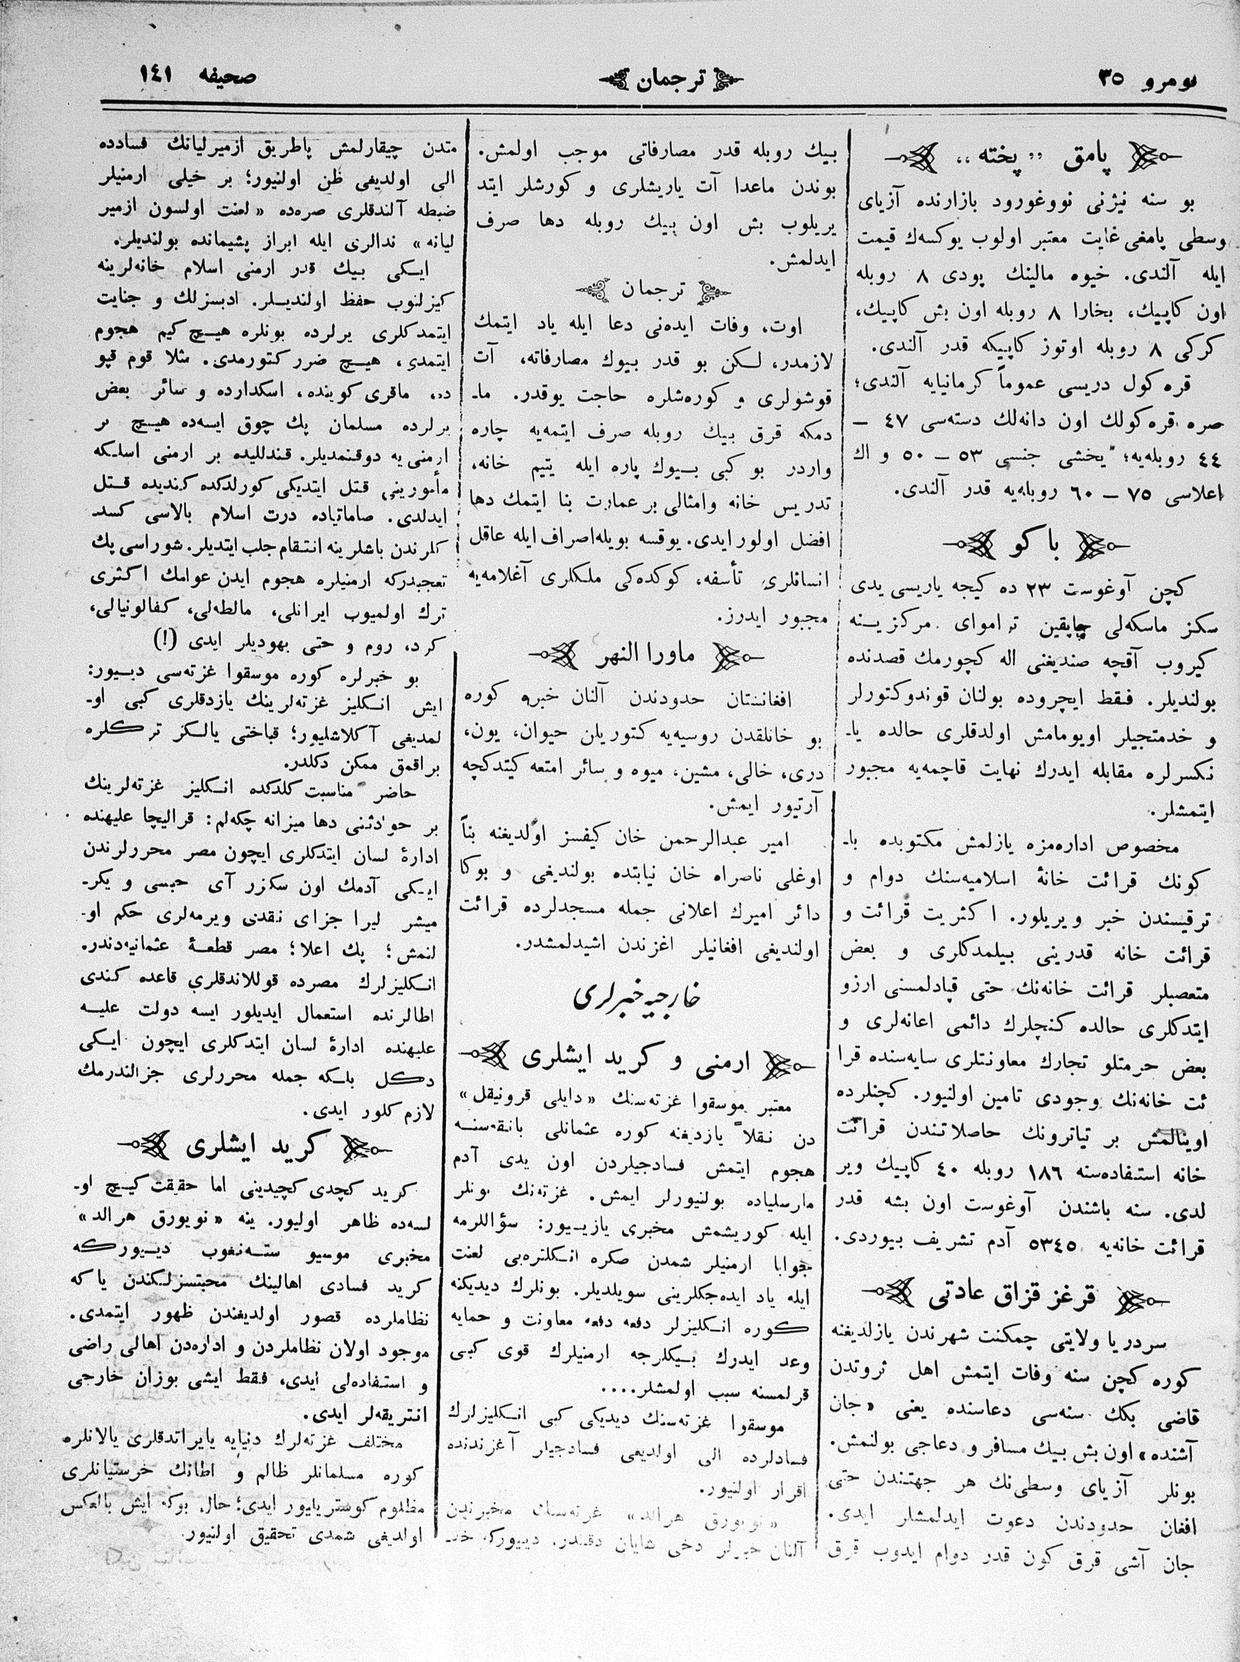 نومرو ٣٥
ترجمان
صحيفه ١٤١
پامق „پخته„
بو سنه نيژنی نووغورود بازارنده آزيای
وسطی پامغی غايت معتبر اولوب يوكسەك قيمت
ايله آلندی. خيوه مالينك پودی ٨ روبله
اون كاپيك، بخارا ٨ روبله اون بش كاپيك،
كركی ٨ روبله اوتوز كاپيكه قدر آلندی.
قره كول دريسی عموماً كرمانيايه آلندی؛
صره قره كولك اون دانەلك دستەسی ٤٧ —
٤٤ روبلەيه؛ يخشی جنسی ٥٣ — ٥٠ و اك
اعلاسی ٧٥ — ٦٠ روبلەيه قدر آلندی.
باكو
كچن آوغوست ٢٣ ده كيجه ياريسی يدی
سكز ماسكەلی چاپقين تراموای مركزينه
كيروب آقچه صنديغنی اله كچورمك قصدنده
بولنديلر. فقط ايچروده بولنان قوندوكتورلر
و خدمتجيلر اويومامش اولدقلری حالده يا-
نكسرلره مقابله ايدرك نهايت قاچمەيه مجبور
ايتمشلر.
مخصوص ادارەمزه يازلمش مكتوبده با-
كونك قرائت خانهٔ اسلاميەسنك دوام و
ترقيسندن خبر ويريلور. اكثريت قرائت و
قرائت خانه قدرينی بيلمدكلری و بعض
متعصبلر قرائت خانەنك حتی قپادلمسنی ارزو
ايتدكلری حالده كنجلرك دائمی اعانەلری و
بعض حرمتلو تجارك معاونتلری سايەسنده قرا
ئت خانەنك وجودی تامين اولنيور. كچنلرده
اوينالمش بر تياترونك حاصلاتندن قرائت
خانه استفادەسنه ١٨٦ روبله ٤٠ كاپيك وير
لدی. سنه باشندن آوغوست اون بشه قدر
قرائت خانەيه ٥٣٤٥ آدم تشريف بيوردی.
قرغز قزاق عادتی
سردريا ولايتی چمكنت شهرندن يازلديغنه
كوره كچن سنه وفات ايتمش اهل ثروتدن
قاضی بكك سنەسی دعاسنده يعنی «جان
آشنده» اون بش بيك مسافر و دعاجی بولنمش.
بونلر آزيای وسطی‌نك هر جهتندن حتی
افغان حدودندن دعوت ايدلمشلر ايدی.
جان آشی قرق كون قدر دوام ايدوب قرق
بيك روبله قدر مصارفاتی موجب اولمش.
بوندن ماعدا آت ياريشلری و كورشلر ايتد
يريلوب بش اون بيك روبله دها صرف
ايدلمش.
ترجمان
اوت، وفات ايدەنی دعا ايله ياد ايتمك
لازمدر، لكن بو قدر بيوك مصارفاته، آت
قوشولری و كورەشلره حاجت يوقدر. ما-
دمكه قرق بيك روبله صرف ايتمەيه چاره
واردر بو كبی بيوك پاره ايله يتيم خانه،
تدريس خانه وامثالی بر عمارت بنا ايتمك دها
افضل اولور ايدی. يوقسه بويله اصراف ايله عاقل
انسانلری تأسفه، كوكدەكی ملكلری آغلامەيه
مجبور ايدرز.
ماورا النهر
افغانستان حدودندن آلنان خبره كوره
بو خانلقدن روسيەيه كتوريلن حيوان، يون،
دری، خالی، مشين، ميوه و سائر امتعه كيتدكچه
آرتيور ايمش.
امير عبدالرحمن خان كيفسز اولديغنه بناً
اوغلی ناصراه خان نيابتده بولنديغی و بوكا
دائر اميرك اعلانی جمله مسجدلرده قرائت
اولنديغی افغانيلر اغزندن اشيدلمشدر.
خارجيه خبرلری
ارمنی و كريد ايشلری
معتبر موسقوا غزتەسنك «دايلی قرونيقل»
دن نقلاً يازديغنه كوره عثمانلی بانقەسنه
هجوم ايتمش فسادجيلردن اون يدی آدم
مارسلياده بولنيورلر ايمش. غزتەنك بونلر
ايله كوريشمش مخبری يازيور: سؤاللرمه
جوابا ارمنيلر شمدن صكره انكلترەيی لعنت
ايله ياد ايدەجكلرينی سويلديلر. بونلرك ديديكنه
كوره انكليزلر دفعه دفعه معاونت و حمايه
وعد ايدرك بيكلرجه ارمنيلرك قوی كبی
قرلمسنه سبب اولمشلر....
موسقوا غزتەسنك ديديكی كبی انكليزلرك
فسادلرده الی اولديغی فسادجيلر آغزندنده
اقرار اولنيور.
«نويورق هرالد» غزتەسنك مخبرندن
آلنان خبرلر دخی شايان دقتدر. دييوركه خر-
متدن چيقارلمش پاطريق ازميرليانك فسادده
الی اولديغی ظن اولنيور؛ بر خيلی ارمنيلر
ضبطه آلندقلری صرەده «لعنت اولسون ازمير
ليانه» ندالری ايله ابراز پشيمانده بولنديلر.
ايكی بيك قدر ارمنی اسلام خانەلرينه
كيزلنوب حفظ اولنديلر. ادبسزلك و جنايت
ايتمدكلری يرلرده بونلره هيچ كيم هجوم
ايتمدی، هيچ ضرر كتورمدی. مثلا قوم قپو
ده، ماقری كوينده، اسكدارده و سائر بعض
يرلرده مسلمان پك چوق ايسەده هيچ بر
ارمنی‌يه دوقنمديلر. قندلليده بر ارمنی اسلكه
مأمورينی قتل ايتديكی كورلدكده كنديده قتل
ايدلدی. صاماتياده درت اسلام بالاسی كسد
كلرندن باشلرينه انتقام جلب ايتديلر. شوراسی پك
تعجبدركه ارمنيلره هجوم ايدن عوامك اكثری
ترك اولميوب ايرانلی، مالطەلی، كفالونيالی،
كرد، روم و حتی يهوديلر ايدی (!)
بو خبرلره كوره موسقوا غزتەسی دييور:
ايش انكليز غزتەلرينك يازدقلری كبی او-
لمديغی آكلاشليور؛ قباختی يالكز تركلره
براقمق ممكن دكلدر.
حاضر مناسبت كلدكده انكليز غزتەلرينك
بر حوادثنی دها ميزانه چكەلم: قراليچا عليهنده
ادارهٔ لسان ايتدكلری ايچون مصر محررلرندن
ايكی آدمك اون سكزر آی حبسی و يكر-
ميشر ليرا جزای نقدی ويرمەلری حكم او-
لنمش؛ پك اعلا؛ مصر قطعهٔ عثمانيەدندر.
انكليزلرك مصرده قوللاندقلری قاعده كندی
اطالرنده استعمال ايديلور ايسه دولت عليه
عليهنده ادارهٔ لسان ايتدكلری ايچون ايكی
دكل بلكه جمله محررلری جزالندرمك
لازم كلور ايدی.
كريد ايشلری
كريد كچدی كچيدينی اما حقيقت كيچ او-
لسەده ظاهر اوليور. ينه «نويورق هرالد»
مخبری موسيو ستەنغوب دييوركه
كريد فسادی اهالينك محبتسزلكندن ياكه
نظاملرده قصور اولديغندن ظهور ايتمدی.
موجود اولان نظاملردن و ادارەدن اهالی راضی
و استفادەلی ايدی، فقط ايشی بوزان خارجی
انتريقەلر ايدی.
مختلف غزتەلرك دنيايه يايراتدقلری يالانلره
كوره مسلمانلر ظالم و اطانك خرستيانلری
مظلوم كوستريليور ايدی؛ حال بوكه ايش بالعكس
اولديغی شمدی تحقيق اولنيور.